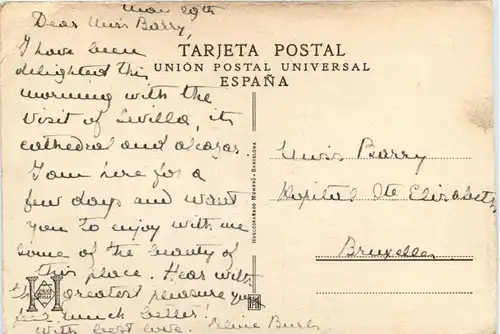 Mar 29th
Dear Miss Barry,
I have been
delighted this
morning with the
visit of Sevilla, its
cathedral and alcazar.
I am here for a
few days and want
you to enjoy with me
some of the beauty of
this place. Hear with
the greatest pleasure you
much better!
With best love.
TARJETA POSTAL
UNIÓN POSTAL UNIVERSAL
ESPAÑA
HUECOGRABADO MUMBRÚ - BARCELONA
Miss Barry
Hôpital Ste Elisabeth
Bruxelles